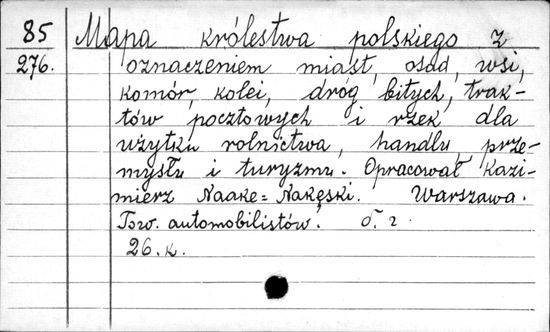 85 Mapa królestwa polskiego z
276. oznaczeniem miast, osad, wsi,
komór, kolei, dróg bitych, trak-
tów pocztowych i rzek dla
użytku rolnictwa, handlu, prze-
mysłu i turyzmu. Opracował Kazi-
mierz Naake=Nakęski. Warszawa.
Tow. automobilistów. b. r.
26. k.